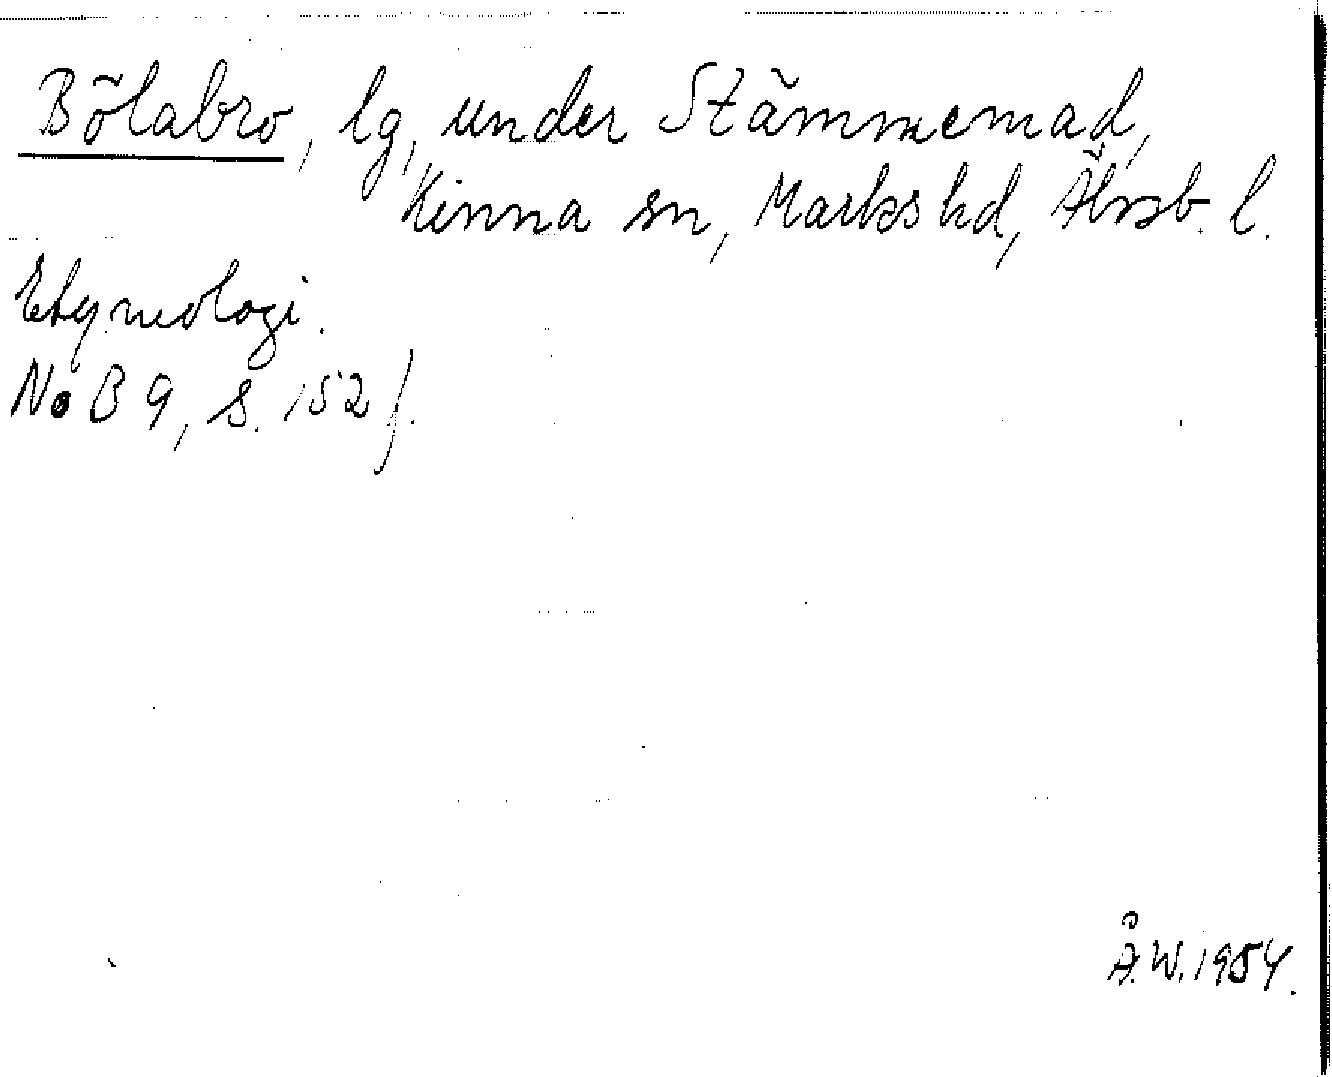 Bölabro, lg, under Stämmemad,
Kinna sn, Marks hd, Älvsb. l.
Etymologi.
NoB 9, s. 152 f.
Å.W. 1954.